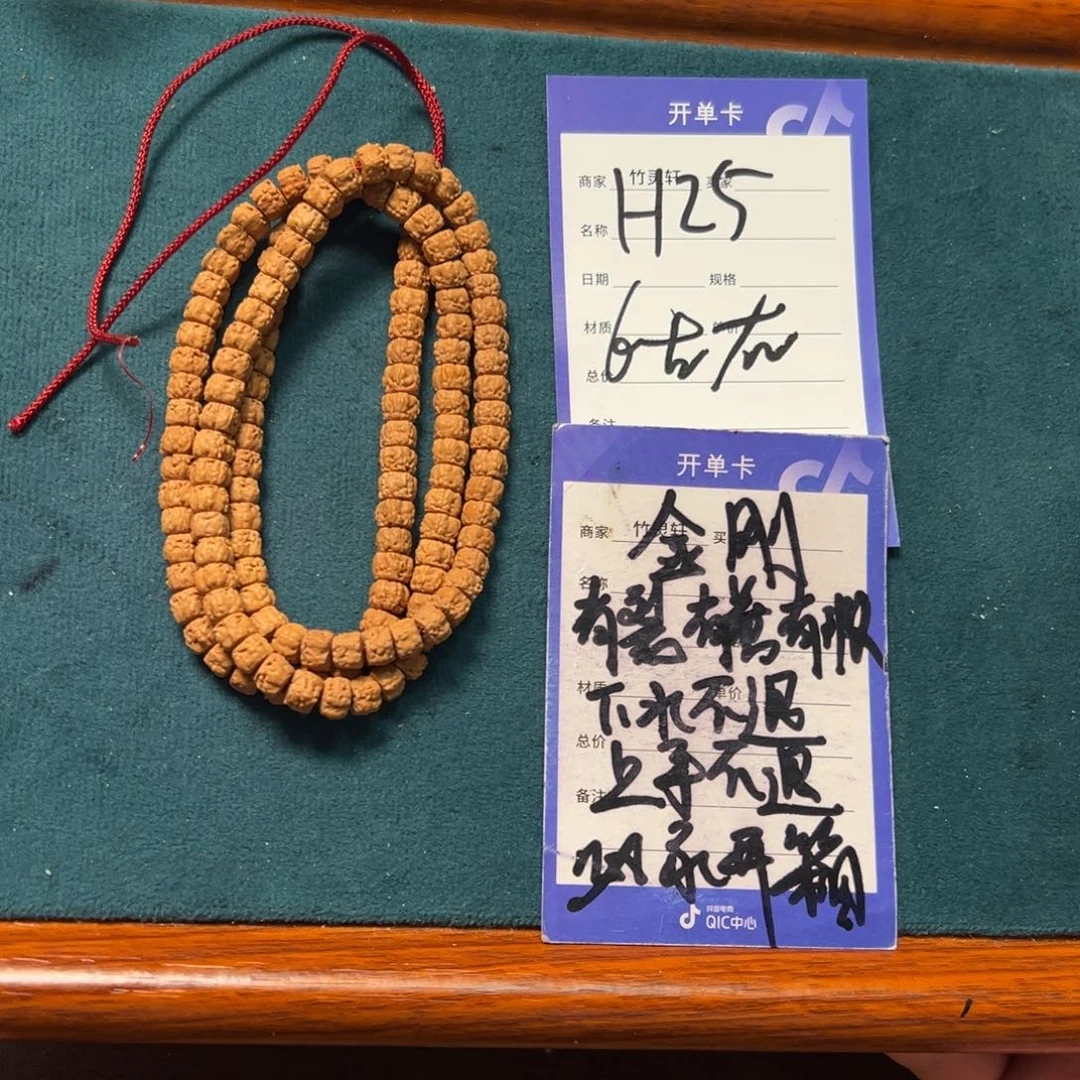 开单卡
商家 竹灵轩 买家
H25
名称
日期 规格
材质 单价
6左右
总价
备注
开单卡
商家 竹灵轩 买
金刚
名称
有裂有黄有
材质 单价
下水不退
总价
上手不退
备注
开箱
抖音电商
QIC中心